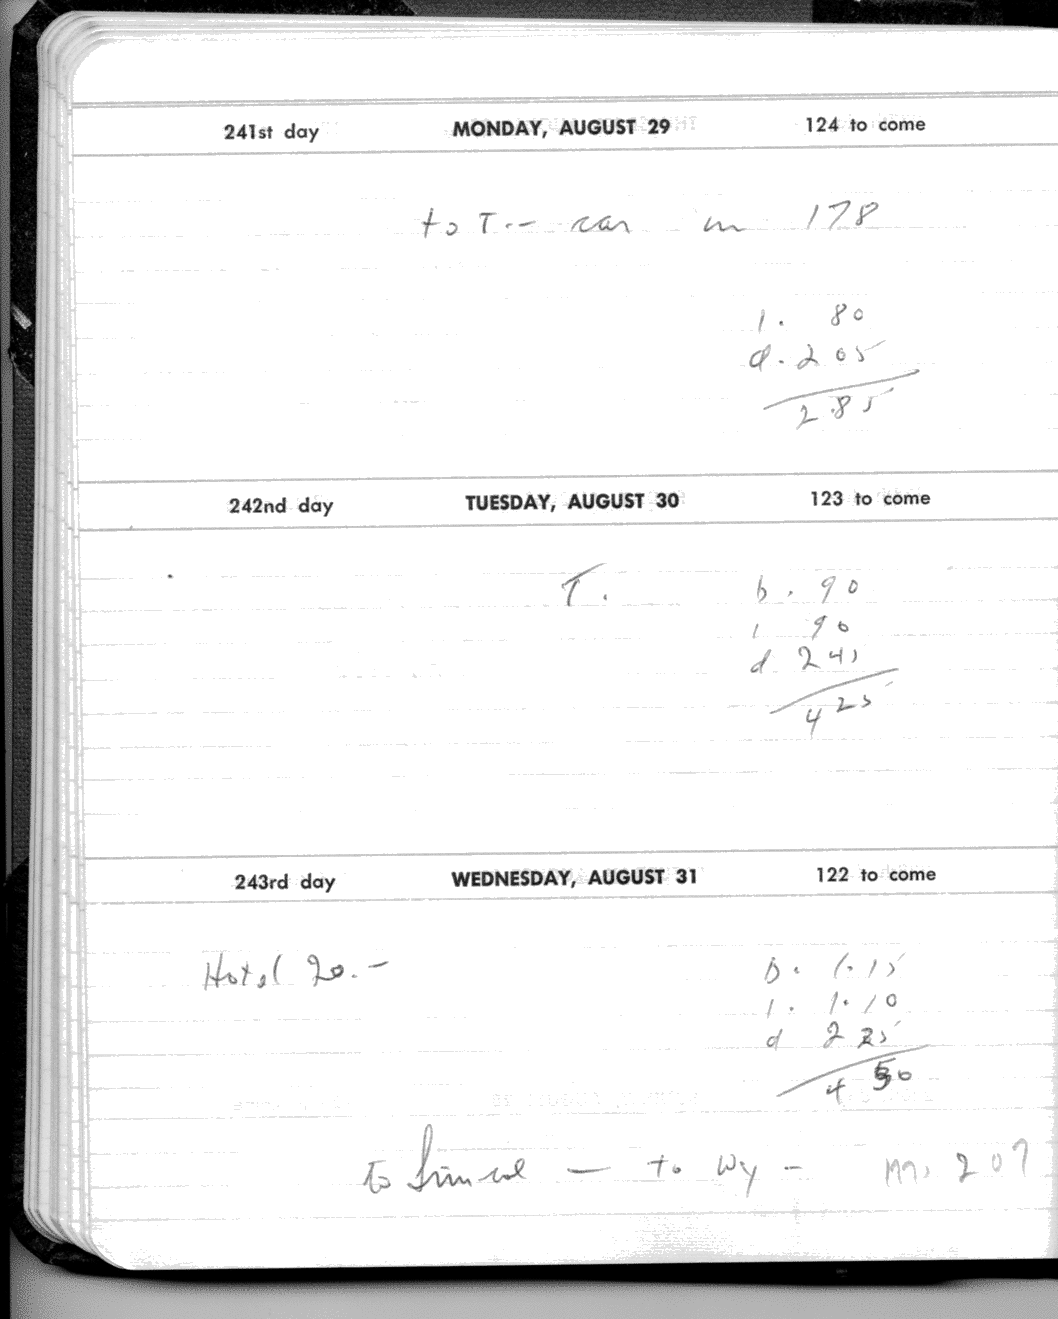 241st day MONDAY, AUGUST 29 124 to come
to T.- car m 178
l. 80
d. 205
285
242nd day TUESDAY, AUGUST 30 123 to come
T. b. 90
l 90
d 245
425
243rd day WEDNESDAY, AUGUST 31 122 to come
Hotel 20.- b. 1.15
l. 1.10
d 2 25
4 50
to - to Wy - m. 207